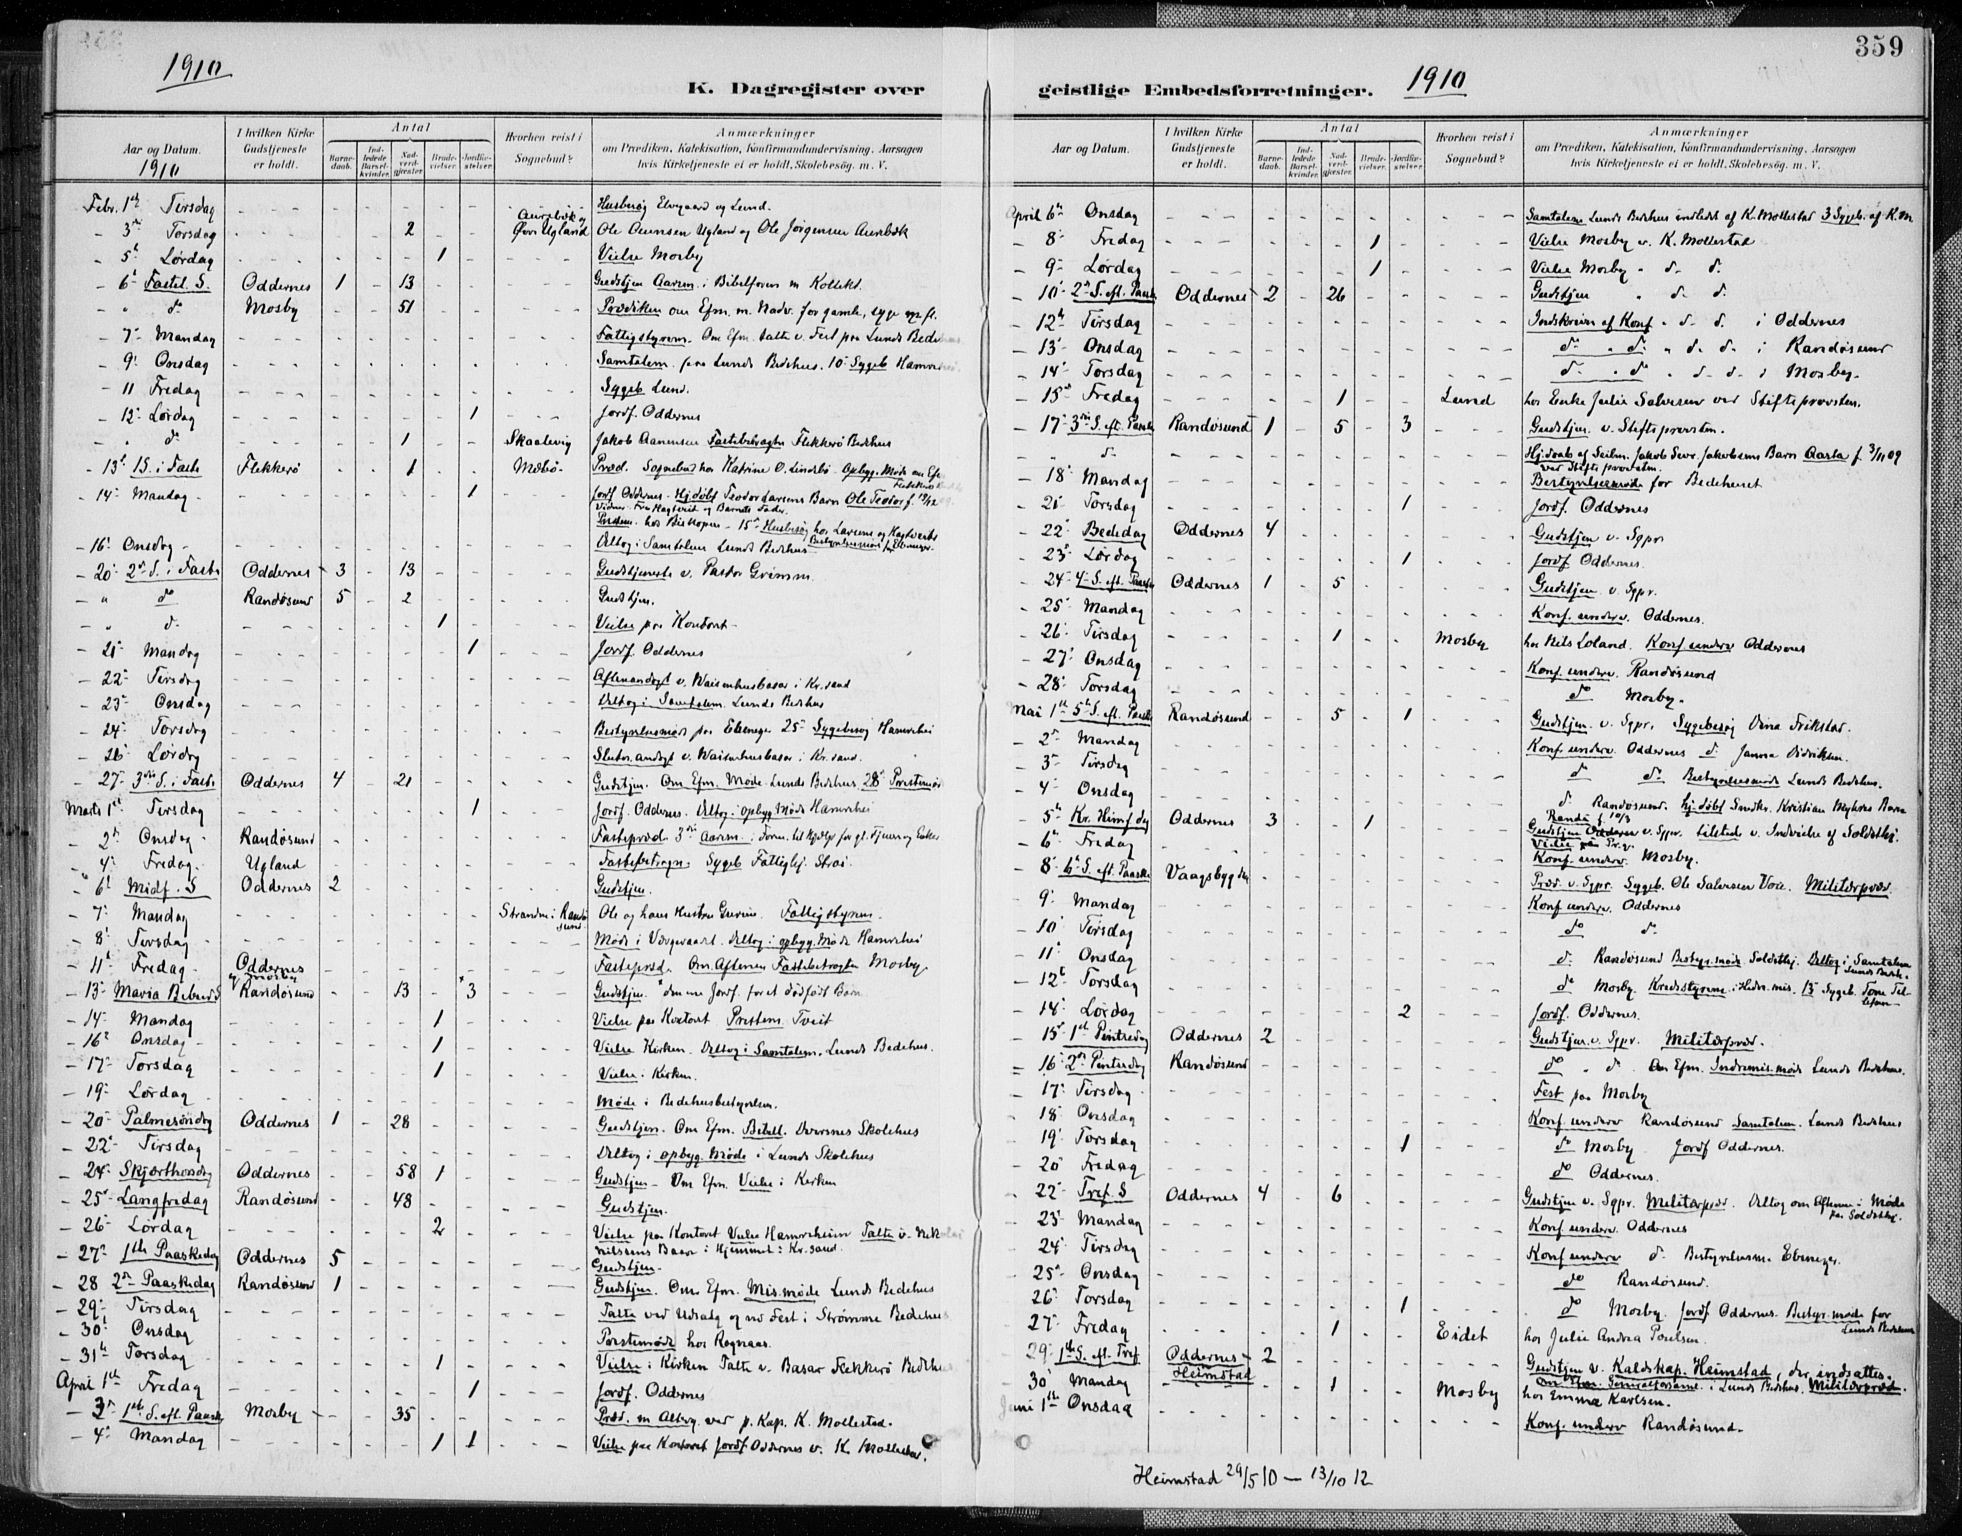 1910
K. Dagregister over
Aar og Datum.
1910
I hvilken Kirke
Gudstjeneste
er holdt.
Antal
Barne-
daab.
Ind-
ledede
Barsel-
kvinder.
Nad-
verd-
gjæster.
Brude-
vielser.
Jordfæ-
stelser.
Hvorhen reist i
Sognebud?
Anmærkninger
om Prædiken, Katekisation, Konfirmandundervisning, Aarsagen
hvis Kirketjeneste ei er holdt, Skolebesøg. m. V.
Febr. 1ste Tirsdag Husbesøg Elvegaard og Lund.
- 3die Torsdag Øvr. Ugland 2 Ole Aunnsen Ugland og Ole Jørgensen
- 5te Lørdag 1 Vielse Mosby
- 6t Fastel. S. Oddernes 1 13 Gudstjen Aarsm. i Bibelforen m Kollekt.
- " do Mosby 51 Prædiken om Efm. m. Nadv. for gamle, syge
- 7 Mandag Fattigstyrem. Om Efm. talte v. Fest paa Lunds
- 9 Onsdag Samtalem. paa Lunds Bedehus. 10 Sygeb
- 11 Fredag Sygeb Lund.
- 12 Lørdag 1 Jordf. Oddernes
- " do 1 Skaalevig Jakob Aanensen Fastebetragtn Flekkerø Bedehus
- 13 1S. i Faste Flekkerø 1 Mæbø Præd. Sognebud hos Katrine O. Lindebø - Opbyg. Møde om Efm
- 14 Mandag 1 Jordf Oddernes - Hj.døbt
- 16 Onsdag Deltog i Samtalem Lunds Bedehus
- 20 2den S. i Faste Oddernes 3 13 Gudstjeneste v. Pastor Grimm.
- " do Randøsund 5 2 Gudstjen.
- " do 1 Vielse paa Kontoret
- 21 Mandag 1 Jordf Oddernes
- 22 Tirsdag Aftenandagt v. Waisenhusbasar i Kr.sand
- 23 Onsdag Deltog i Samtalem. Lunds Bedehus
- 24 Torsdag Bestyrelsesmøde paa Ebenezer 25 Sygebesøg
- 26 Lørdag Slutn. andagt v. Waisenhusbasar i Kr. sand.
- 27 3die S. i Faste Oddernes 4 21 Gudstjen. Om Efm. Møde. Lunds Bedehus 28 Prestemøde
Marts 1st Tirsdag 1 Jordf. Oddernes. Deltog i opbyg Møde
- 2 Onsdag Randøsund Fastepræd
- 4 Fredag Ugland Fastebetragtn. Sygeb Fattighj. Strai
- 6t Midf. S Oddernes 2 Gudstjen.
- 7 Mandag Ole og hans Hustru Fattigstyrem.
- 8 Tirsdag Møde i Værgeraadet. Deltog i opbyg. Møde
- 11 Fredag Oddernes og Mosby Fastepræd. Om Aftenen Fastebetragtn Mosby
- 13 Maria Bebud S Randøsund 13 *3 Gudstjen. *denne Jordf. for et dødfødt Barn
- 14 Mandag 1 Vielse paa Kontoret Prestem. Tveit
- 16 Onsdag 1 Vielse Kirken. Deltog i Samtalem. Lunds Bedehus.
- 17 Torsdag 1 Vielse. Kirken.
- 19 Lørdag Møde i Bedehusbestyrelsen.
- 20 Palmesøndag Oddernes 1 28 Gudstjen. Om Efm. Bibell. Skolehus
- 22 Tirsdag Deltog i opbyg. Møde i Lunds Skolehus
- 24 Skjærthorsdag Oddernes 58 1 Gudstjen - Om Efm. Vielse i Kirken
- 25 Langfredag Randøsund 48 Gudstjen.
- 26 Lørdag 2 Vielse paa Kontoret Vielse Talte v.
Nilsens Basar i Hjemmet i Kr.sand.
- 27 1ste Paaskedag Oddernes 5 Gudstjen.
- 28 2den Paaskedag Randøsund 1 Gudstjen. Om Efm. Mis.møde Lunds Bedehus
- 29 Tirsdag Talte ved Udsalg og ved Fest i Strømme Bedehus
- 30 Onsdag Prestemøde hos Rognaas.
- 31te Torsdag 1 Vielse i Kirken Talte v. Basar Flekkerø
April 1ste Fredag 1 Jordf. Oddernes
- 3 1ste S. eft. Paaske Mosby 35 Præd. m Alterg. ved p. Kap. K. Mollestad.
- 4 Mandag 1 1 Vielse paa Kontoret Jordf Oddernes v. K. Mollestad.
359
geistlige Embedsforretninger. 1910
Aar og Datum.
I hvilken Kirke
Gudstjeneste
er holdt.
Antal
Barne-
daab.
Ind-
ledede
Barsel-
kvinder.
Nad-
verd-
gjæster.
Brude-
vielser.
Jordfæ-
stelser.
Hvorhen reist i
Sognebud?
Anmærkninger
om Prædiken, Katekisation, Konfirmandundervisning, Aarsagen
hvis Kirketjeneste ei er holdt, Skolebesøg. m. V.
April 6te Onsdag Samtalem Lunds Bedehus indledt af K. Mollestad 3 Sygeb. af K.M
- 8 Fredag 1 Vielse Mosby v. K. Mollestad
- 9 Lørdag 1 Vielse Mosby " do do
- 10 2den S. eft. Paaske Oddernes 2 26 Gudstjen " do do
- 12te Tirsdag Indskrivn af Konf. " do do i Oddernes
- 13 Onsdag do " do " do do i Randøsund
- 14 Torsdag do " do " do do i Mosby.
- 15 Fredag 1 Lund hos Enke Julie Salvesen ved Stiftsprovsten.
- 17 3die S. eft. Paaske Randøsund 1 5 3 Gudstjen. v. Stiftsprovsten.
" do Hj.daab af Jakobsens Barn f. 3/11 09
ved Stiftsprovsten.
- 18 Mandag Bestyrelsesmøde for Bedehuset
- 21 Torsdag 1 Jordf. Oddernes
- 22 Bededag Oddernes 4 Gudstjen v. Sgpr
- 23 Lørdag 1 Jordf Oddernes.
- 24 4 S. eft. Paaske Oddernes 1 5 Gudstjen v. Sgpr.
- 25 Mandag Konf. underv. Oddernes.
- 26 Tirsdag 1 Mosby hos Nils Loland. Konf underv Oddernes
- 27 Onsdag Konf. underv. Randøsund
- 28 Torsdag do Mosby.
Mai 1ste 5te S. eft. Paaske Randøsund 5 1 Gudstjen. v. Sgpr. Sygebesøg
- 2 Mandag Konf. underv Oddernes
- 3 Tirsdag do do Bestyrelsesmøde Lunds Bedehus.
- 4 Onsdag do Randøsund. Hj.døbt Kristian Barn
- 5te Kr. Himf. dg Oddernes 3 1 Gudstjen Oddernes v. Sgpr. tilsted v. Indvielse af Soldathj.
- 6te Fredag Konf. underv. Mosby.
- 8 6te S. eft. Paaske Vaagsbygden Præd v. Sgpr. Sygeb. Ole Salvesen Voie. Militærpræd.
- 9 Mandag Konf underv. Oddernes
- 10 Tirsdag do do
- 11 Onsdag do Randøsund Bestyr. møde Soldathj. Deltog i Samtalem
- 12te Torsdag do Mosby. Kredsstyrem. i Hedn.mis. 13 Sygeb.
- 14 Lørdag 2 Jordf. Oddernes.
- 15 1ste Pintsedag Oddernes 2 Gudstjen. v. Sgpr. Militærpræd.
- 16 2den Pintsedag Randøsund do " do Om Efm. Indremis. møde Lunds Bedehus.
- 17 Tirsdag Fest paa Mosby
- 18 Onsdag Konf. underv Randøsund Samtalem. Lunds Bedehus
- 19 Torsdag 1 do Mosby Jordf Oddernes.
- 20 Fredag do Oddernes.
- 22 Tref. S Oddernes 4 6 Gudstjen v. Sgpr. Militærpræd. Deltog om Aftenen i Møde
paa Soldathj.
- 23 Mandag Konf. underv Oddernes
- 24 Tirsdag Konf underv do Bestyrelsesm. Ebenezer.
- 25 Onsdag do Randøsund.
- 26 Torsdag 1 do Mosby. Jordf Oddernes. Bestyr. møde for
Lunds Bedehus
- 27 Fredag 1 Eidet hos Julie Andrea Poulsen.
- 29 1ste S. eft. Tref Oddernes 2 Gudstjen v. Kaldskap. Heimstad, der indsattes.
Heimstad
- 30 Mandag 1 Mosby hos Emma Karlsen.
Juni 1ste Onsdag Konf. underv Randøsund.
Heimstad 29/5 10 — 13/10 12